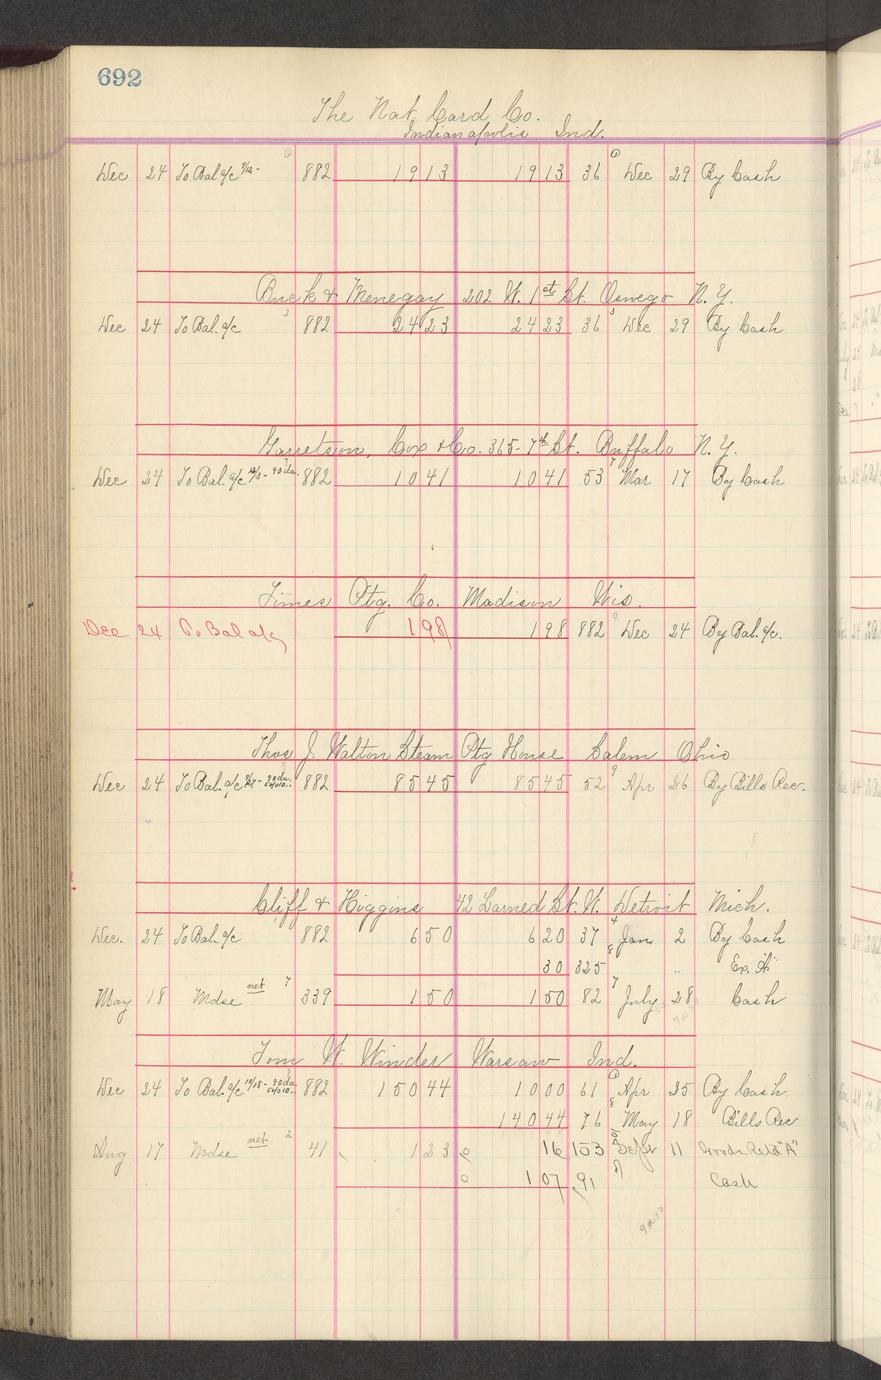 692
The Nat. Card Co.
Indianapolis Ind.
Dec 24 To Bal a/c 882 1913 1913 36 Dec 29 By Cash
Buck & Menegay 202 W. 1st St. Oswego N.Y.
Dec 24 To Bal. a/c 3 882 2423 2423 36 3 Dec 29 By Cash
Garretson, Cox & Co. 365-7th St. Buffalo N.Y.
Dec 24 To Bal. a/c 12/3-90 da. 882 1041 1041 53 7 Mar 17 By Cash
Times Ptg. Co. Madison Wis.
Dec 24 To Bal a/c 198 198 882 Dec 24 By Bal. a/c.
Thos J. Walton Steam Ptg House Salem Ohio
Dec 24 To Bal. a/c 882 8545 8545 52 9 Apr 26 By Bills Rec.
Cliff & Higgins 42 Larned St. W. Detroit Mich.
Dec. 24 To Bal. a/c 882 650 620 37 4 Jan. 2 By Cash
30 325 8 " Ex. "A"
May 18 Mdse net 7 339 150 150 82 7 July 28 Cash
Tom W. Winder Warsaw Ind.
Dec 24 To Bal. a/c 882 15044 1000 61 Apr 25 By Cash
14044 76 8 May 18 Bills Rec
Aug 17 Mdse net 2 41 123 16 153 Sept 11 Goods Retd "A"
107 91 Cash